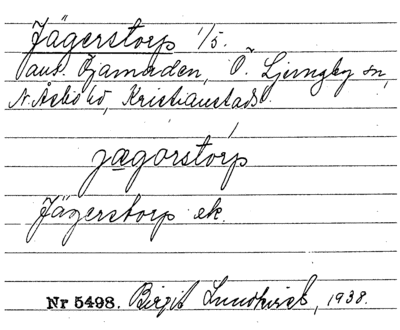 Jägerstorp 1/5.
aus. Bjarnaden, Ö. Ljungby sn,
N. Åsbo hd, Kristianstads
jægorstórp
Jägerstorp ek.
Nr 5498. Birgit Lundqvist, 1938.